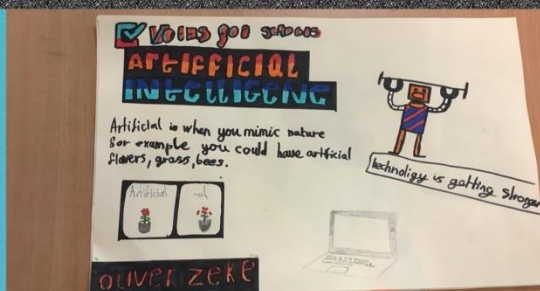 Votes for schools
ARTIFFICIAL
INTELLIGENE
Artificial is when you mimic nature
for example you could have artificial
flavers, grass, bees.
technoligy is getting stronger
Artificial
real
OLIVER ZEKE